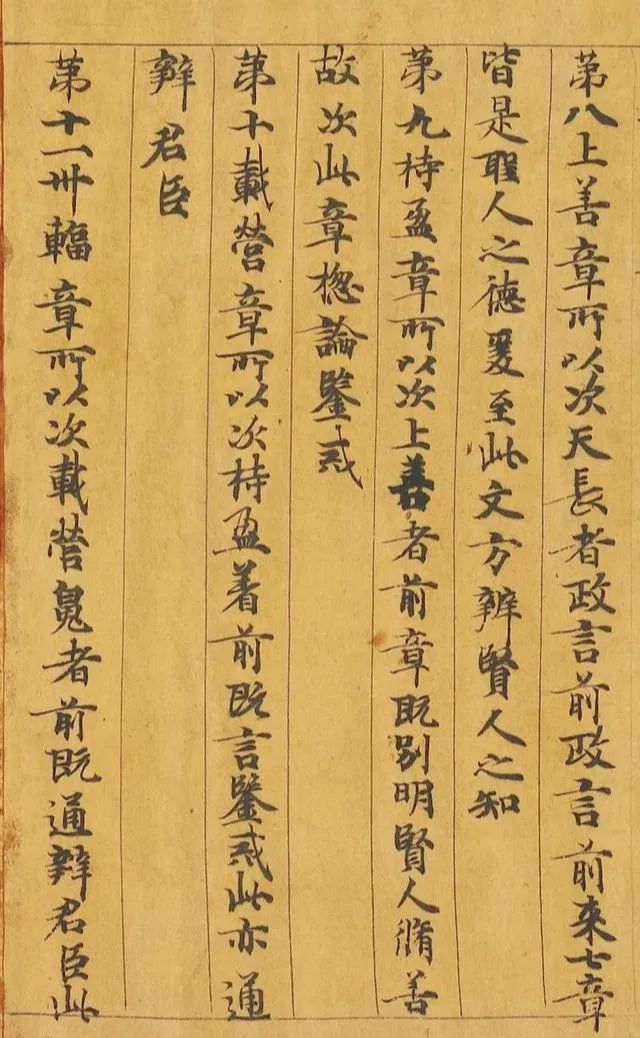 第八上善章所以次天長者政言前政言前来七章
皆是聖人之德爰至此文方辨賢人之知
第九持盈章所以次上善者前章既别明賢人脩善
故次此章惣論鑒戒
第十載營章所以次持盈着前既言鑒戒此亦通
辨君臣
第十一卅輻章所以次載營䰟者前既通辨君臣此